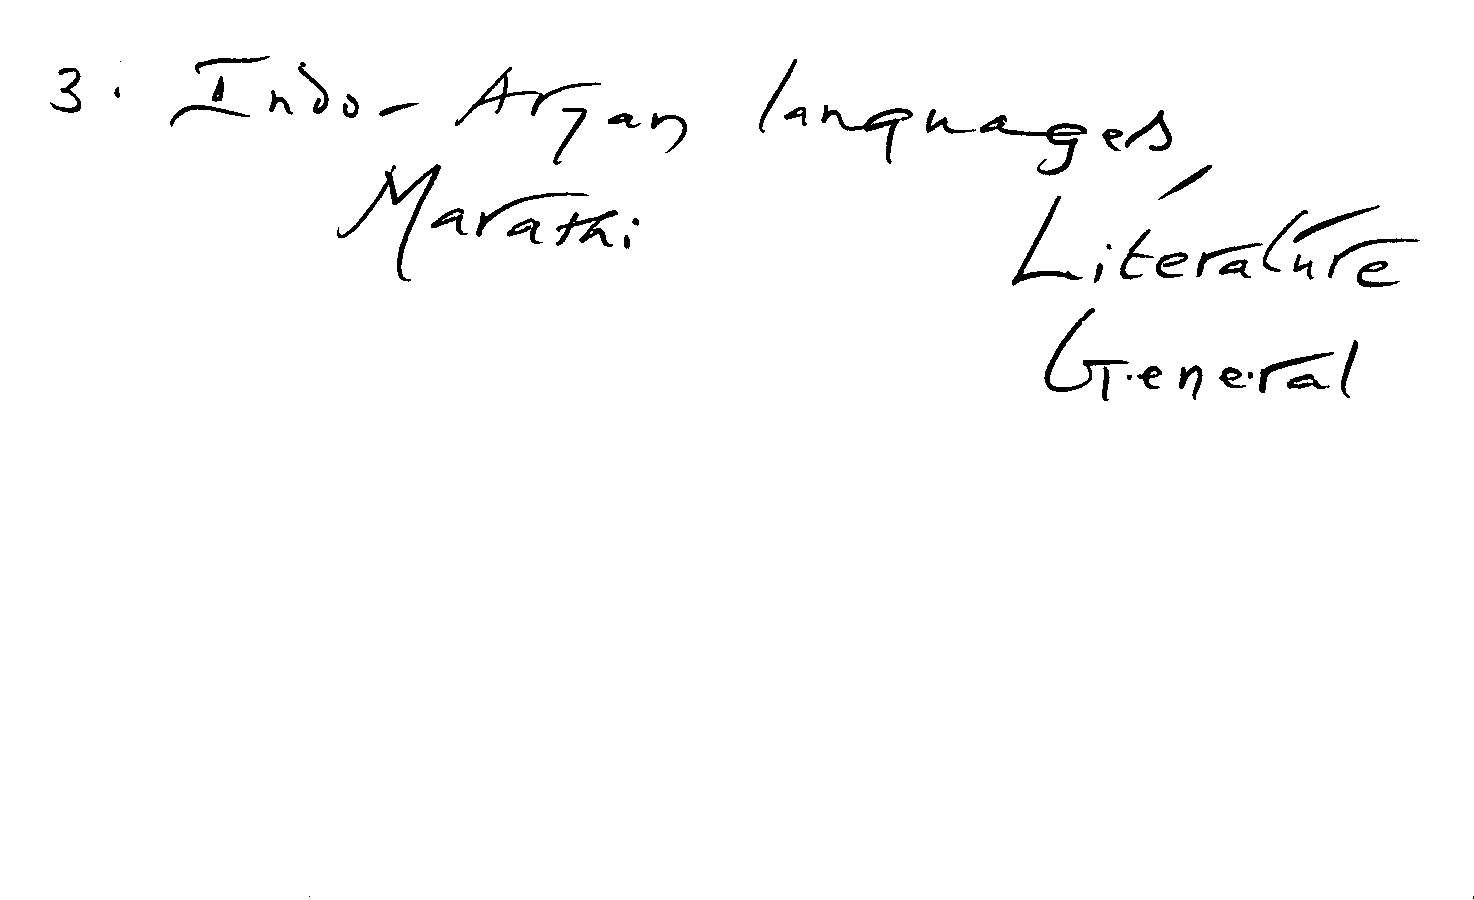 3. Indo-Aryan languages,
Marathi
Literature
General